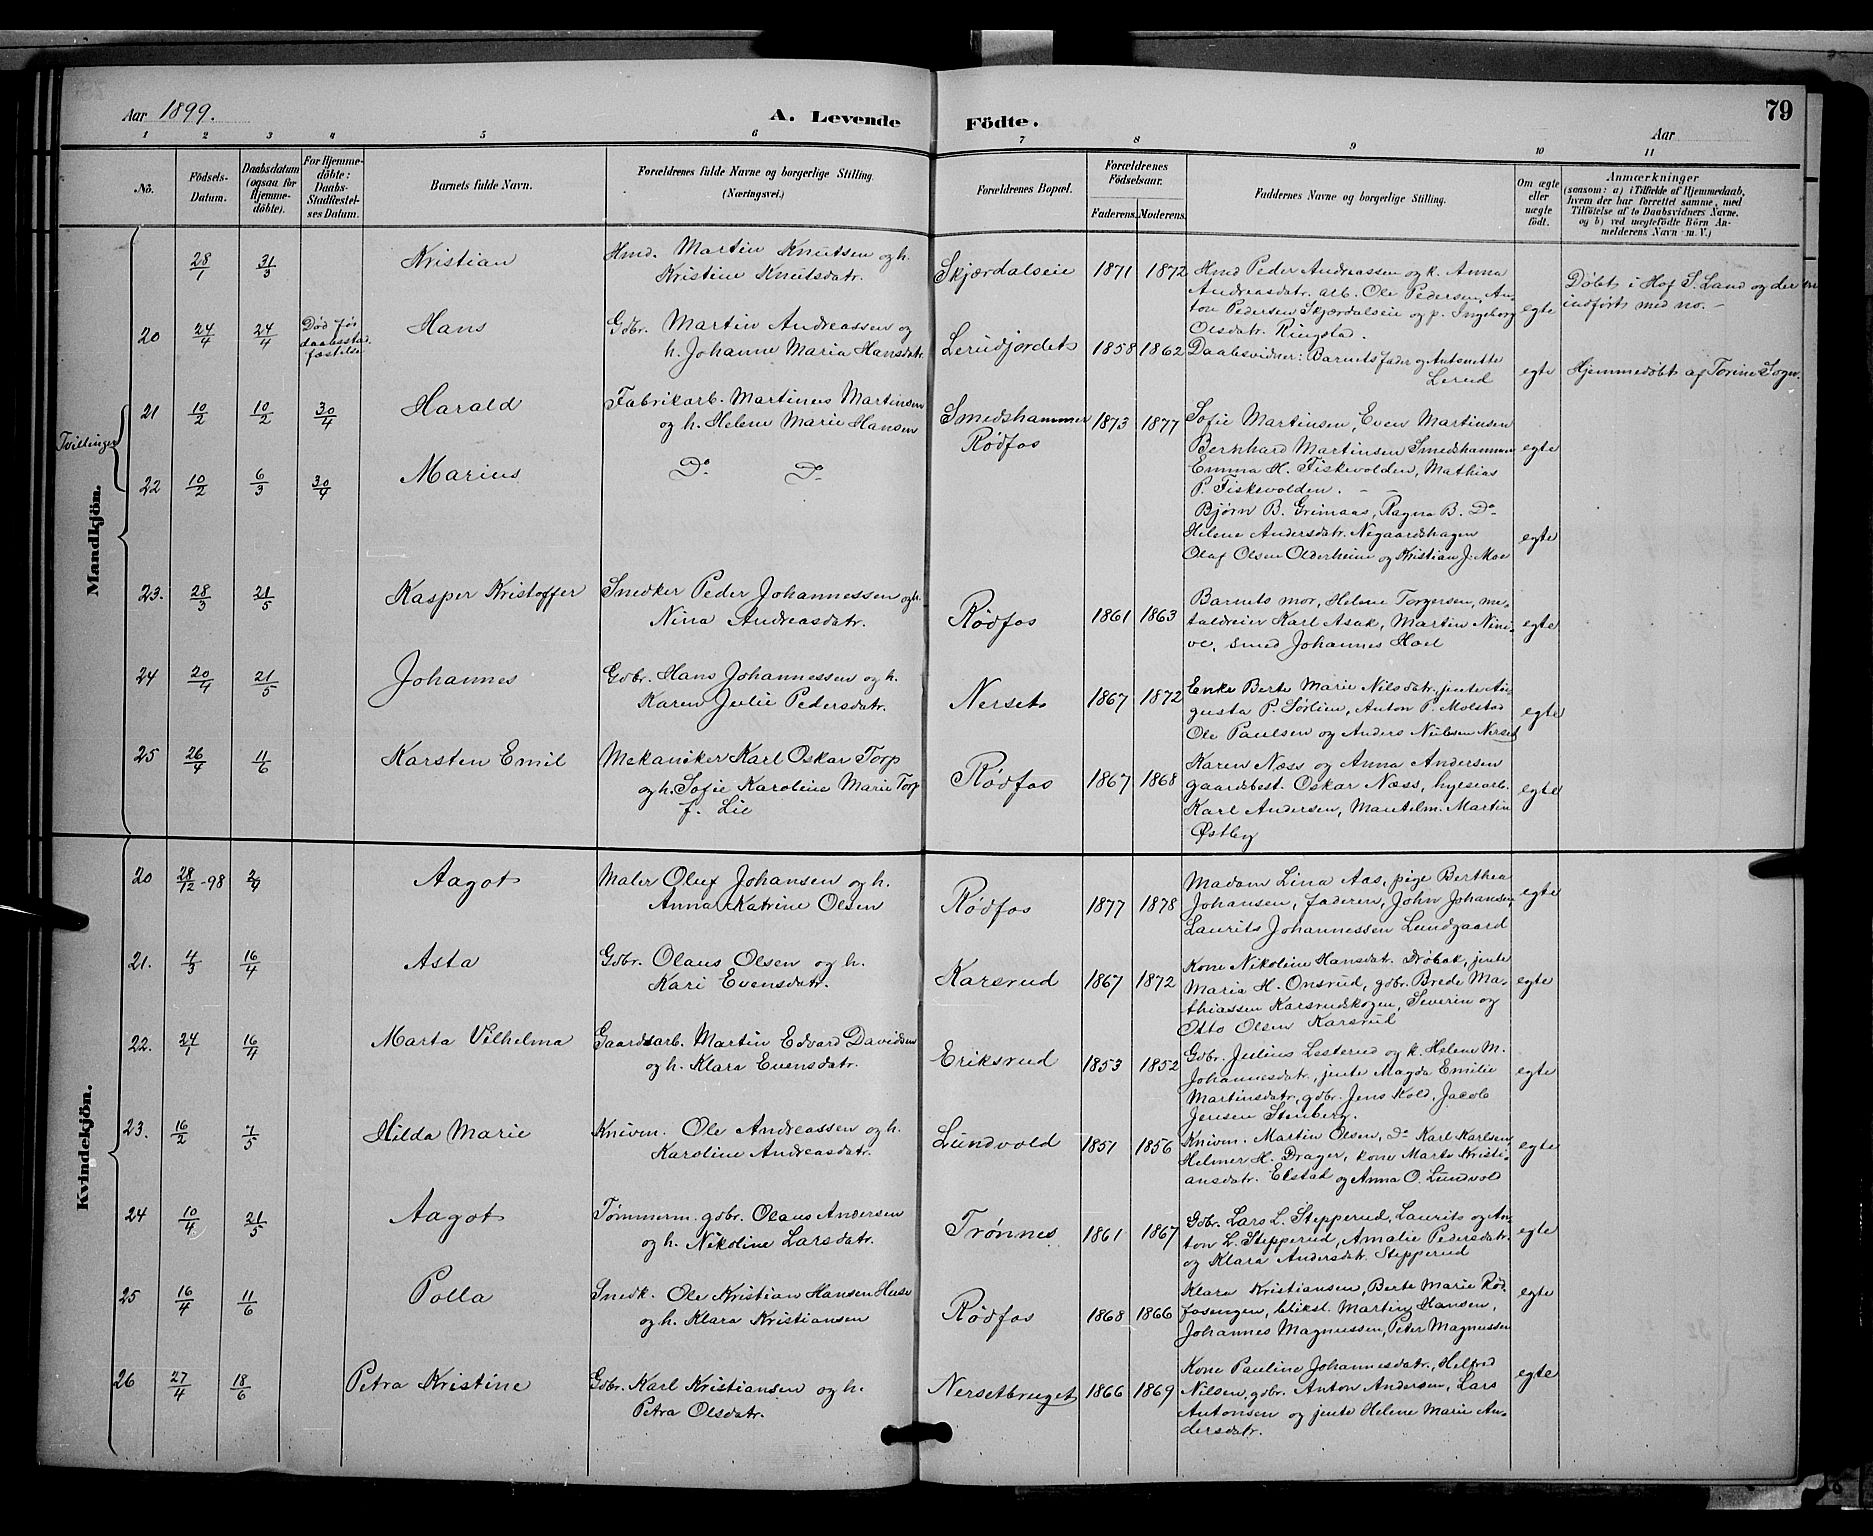 79
Aar 1899.
A. Levende Födte.
Aar
1 2 3 4 5 6 7 8 9 10 11
No.
Födsels-
Datum.
Daabsdatum
(ogsaa for
Hjemme-
döbte).
For Hjemme-
döbte:
Daabs-
Stadfæstel-
ses Datum.
Barnets fulde Navn.
Forældrenes fulde Navne og borgerlige Stilling
(Næringsvei.)
Forældrenes Bopæl.
Forældrenes
Födselsaar.
Faderens. Moderens.
Faddernes Navne og borgerlige Stilling.
Om ægte
eller
uægte
födt.
Anmærkninger
(saasom: a) i Tilfælde af Hjemmedaab,
hvem der har forrettet samme, med
Tilföielse af to Daabsvidners Navne.
og b) ved uægtefödte Börn An-
melderens Navn m. V.)
Mandkjön.
28/1 31/3 Kristian
Hmd. Martin Knutsen og h.
Kristine Knutsdatr.
Skjærdalseie 1871 1872
Hmd Peder Andreassen og k. Anna
Andreasdatr. arb. Ole Pedersen, An-
ton Pedersen Skjærdalseie og p. Ingeborg
Olsdatr. Ringsta.
egte
Døbt i Hof S. Land og der
indført med no. -
20 24/4 24/4
Død før
daabsstad-
fæstelse
Hans
Gdbr. Martin Andreassen og
h. Johanne Maria Hansdatr.
Lerudjordet 1858 1862
Daabsvidner: Barnets fader og Antonette
Lerud
egte
Hjemmedøbt af Torine Sogn.
Tvillinger
21 10/2 10/2 30/4 Harald
Fabrikarb. Martinus Martinsen
og h. Helene Marie Hansen
Smedshammer
Rødfos
1873 1877
Sofie Martinsen, Even Martinsen
Bernhard Martinsen Smedshammer
Emma H. Fiskevolden, Mathias
P. Fiskevolden. - -
egte
22 10/2 6/3 30/4 Marius
Do Do
Bjørn B. Grimaas, Ragna B. Do
Helene Andersdatr. Negaardshagen
Olaf Olsen Olderheim og Kristian J. Moe
egte
23. 28/3 21/5 Kasper Kristoffer
Snedker Peder Johannessen og h.
Nina Andreasdatr.
Rødfos 1861 1863
Barnets mor, Helene Torgersen, me-
taldreier Karl Asak, Martin Nini-
ve, smed Johannes Hoel
egte
24 20/4 21/5 Johannes
Gdbr. Hans Johannessen og h.
Karen Julie Pedersdatr.
Nerset 1867 1872
Enke Berte Marie Nilsdatr. jente Au-
gusta P. Sørlien, Anton P. Molstad
Ole Paulsen og Anders Nilsen Nerset
egte
25 26/4 11/6 Karsten Emil
Mekaniker Karl Oskar Torp
og h. Sofie Karoline Marie Torp
f. Lie
Rødfos 1867 1868
Karen Næss og Anna Andersen
gaardsbest. Oskar Næss, hylsearb.
Karl Andersen, Martin
Østby
egte
Kvindekjön.
20 28/12-98 2/4 Aagot
Maler Oluf Johansen og h.
Anna Katrine Olsen
Rødfos 1877 1878
Madam Lina Aas, pige Berthea
Johansen, faderen, John Johansen,
Laurits Johannessen Lundgaard
egte
21. 4/3 16/4 Asta
Gdbr. Olaus Olsen og h.
Kari Evensdatr.
Karsrud 1867 1872
Kone Nikoline Hansdatr. Drøbak, jente
Maria H. Onsrud, gdbr. Brede Ma-
thiassen Karsrudskogen, Severin og
Otto Olsen Karsrud
egte
22. 24/1 16/4 Marta Vilhelma
Gaardsarb. Martin Edvard Davidsen
og h. Klara Evensdatr.
Eriksrud 1853 1852
Gdbr. Julius Lesterud og k. Helene M.
Johannesdatr., jente Magda Emilie
Martinsdatr, gdbr. Jens Kold, Jacob
Jensen Stenberg.
egte
23. 16/2 7/5 Hilda Marie
Knivm. Ole Andreassen og h.
Karoline Andreasdatr.
Lundvold 1851 1856
Knivm. Martin Olsen, do Karl Karlsen,
Helmer H. Drager, kone Marte Kristi-
ansdatr. Elstad og Anna O. Lundvold
egte
24 10/4 21/5 Aagot
Tømmerm. gdbr. Olaus Andersen
og h. Nikoline Larsdatr.
Trønnes 1861 1867
Gdbr. Lars L. Stepperud, Laurits og An-
ton L. Stepperud, Amalie Pedersdatr.
og Klara Andersdatr. Stepperud
egte
25 16/4 11/6 Polla
Snedk. Ole Kristian Hansen Huse
og h. Klara Kristiansen
Rødfos 1868 1866
Klara Kristiansen, Berte Marie Rød-
fosengen, bliksl. Martin Hansen,
Johannes Magnussen, Peter Magnussen
egte
26 27/4 18/6 Petra Kristine
Gdbr. Karl Kristiansen og h.
Petra Olsdatr.
Nersetbruget 1866 1869
Kone Pauline Johannesdatr., Helfred
Nilsen, gdbr. Anton Andersen, Lars
Antonsen og jente Helene Marie An-
dersdatr.
egte